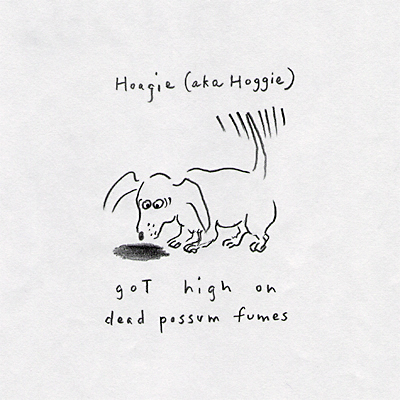 Hoagie (aka Hoggie)
goT high on
dead possum fumes